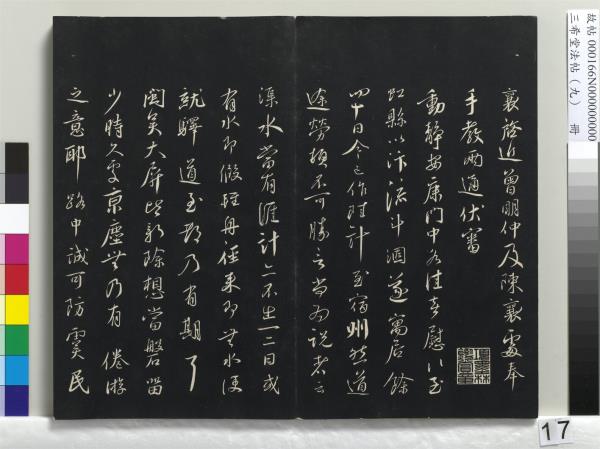 故帖 000166N000000000
三希堂法帖（九）　冊
襄啓近曾明仲及陳襄處奉
手教兩通伏審
動靜安康門中各佳喜慰〻至
虹縣以汴流斗涸遂寓居餘
四十日今已作陸計至宿州然道
途勞頓不可勝言尚為說者云
渠水當有涯計亦不出一二日或
有水即假輕舟徑來即無水便
就驛道至都乃有期了
閩吳大屏皆新除想當磐留
少時久處京塵無乃有倦游
之意耶路中誠可防霣民
17